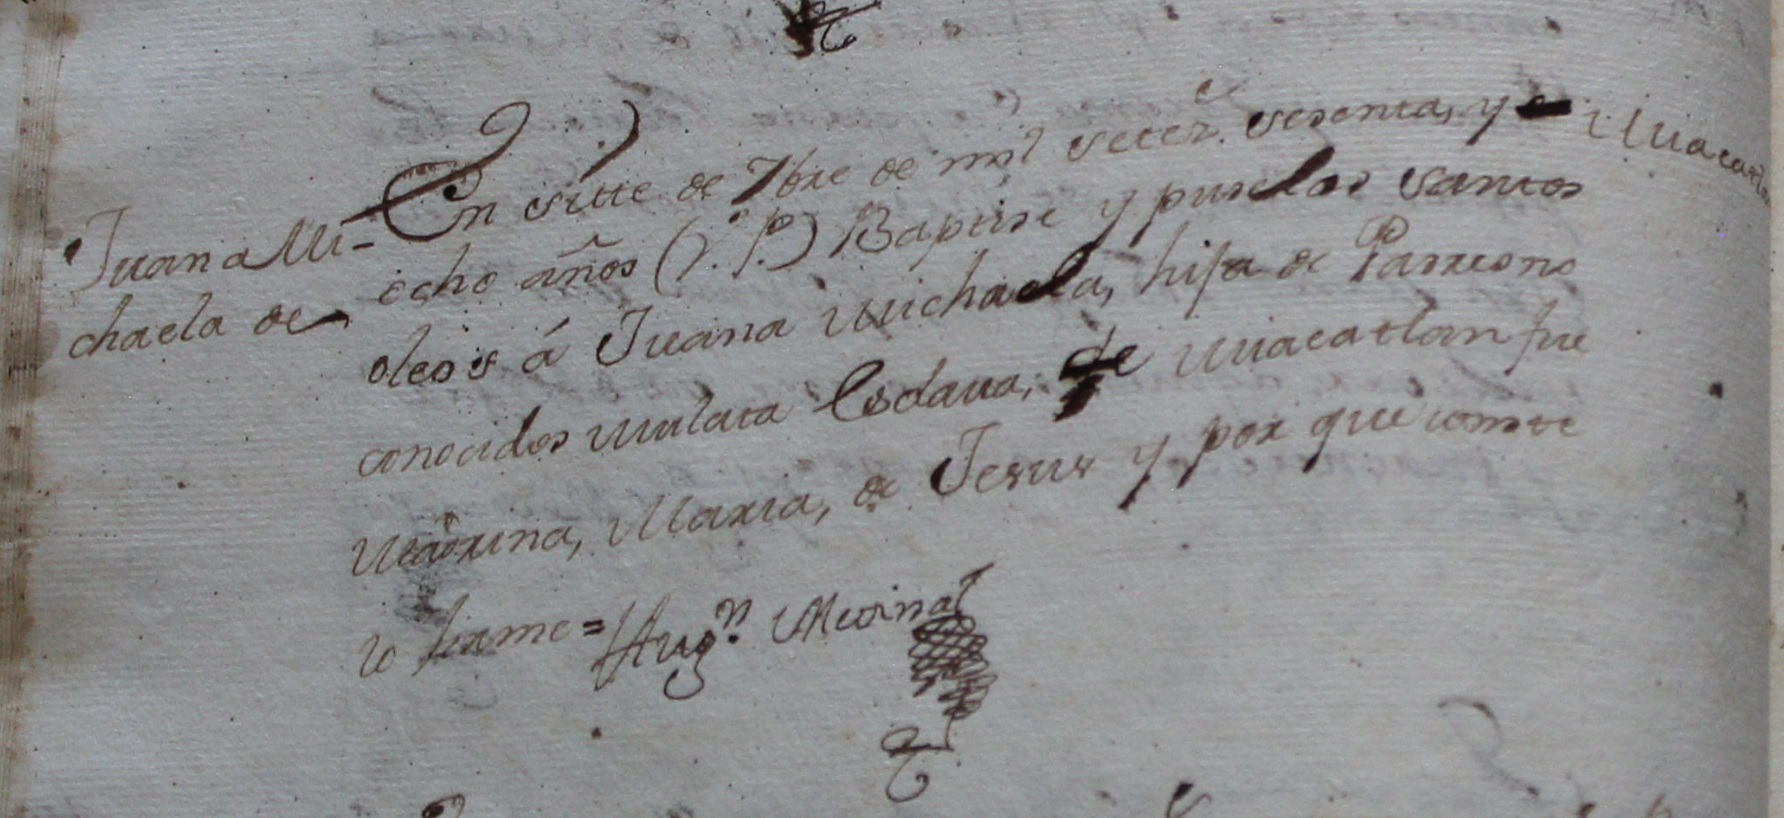 Juana Mi-
chaela de
En siete de 7bre de mil setecs. sesenta, y
ocho años (V. P.) Baptise y puse los santos
oleos á Juana Michaela, hija de Padres no
conocidos mulata Esclava, de Miacatlan fue
Madrina, Maria, de Jesus y por que conste
lo firme = Augn. Medina
Miacatlan